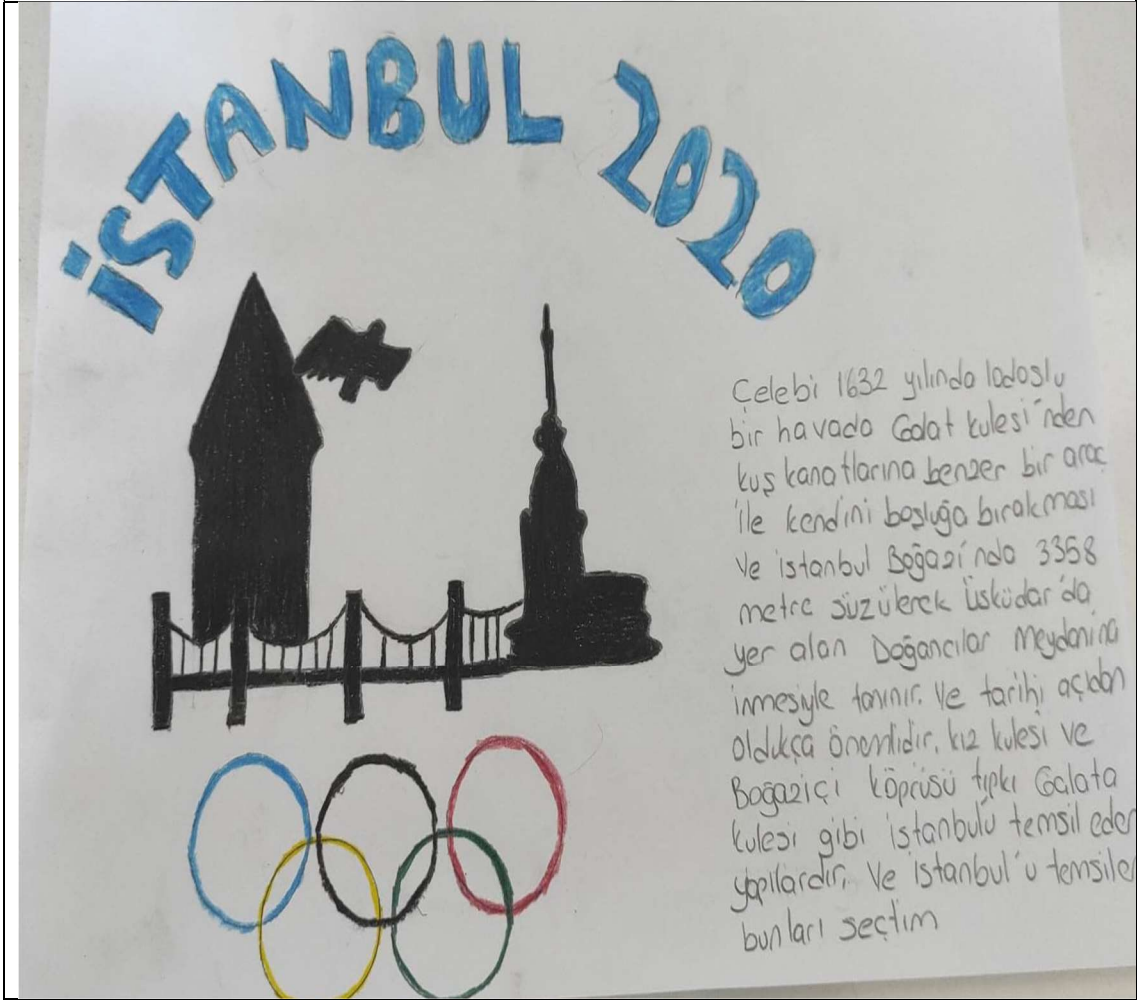 İSTANBUL 2020
Çelebi 1632 yılında lodoslu
bir havada Galat kulesi'nden
kuş kanatlarına benzer bir araç
ile kendini boşluğa bırakması
Ve istanbul Boğazı'nda 3358
metre süzülerek Üsküdar'da
yer alan Doğancılar Meydanına
inmesiyle tanınır. Ve tarihi açıdan
oldukça önemlidir. kız kulesi ve
Boğaziçi köprüsü tıpkı Galata
kulesi gibi istanbulu temsil eder
yapılardır. Ve istanbul'u temsile
bunları seçtim